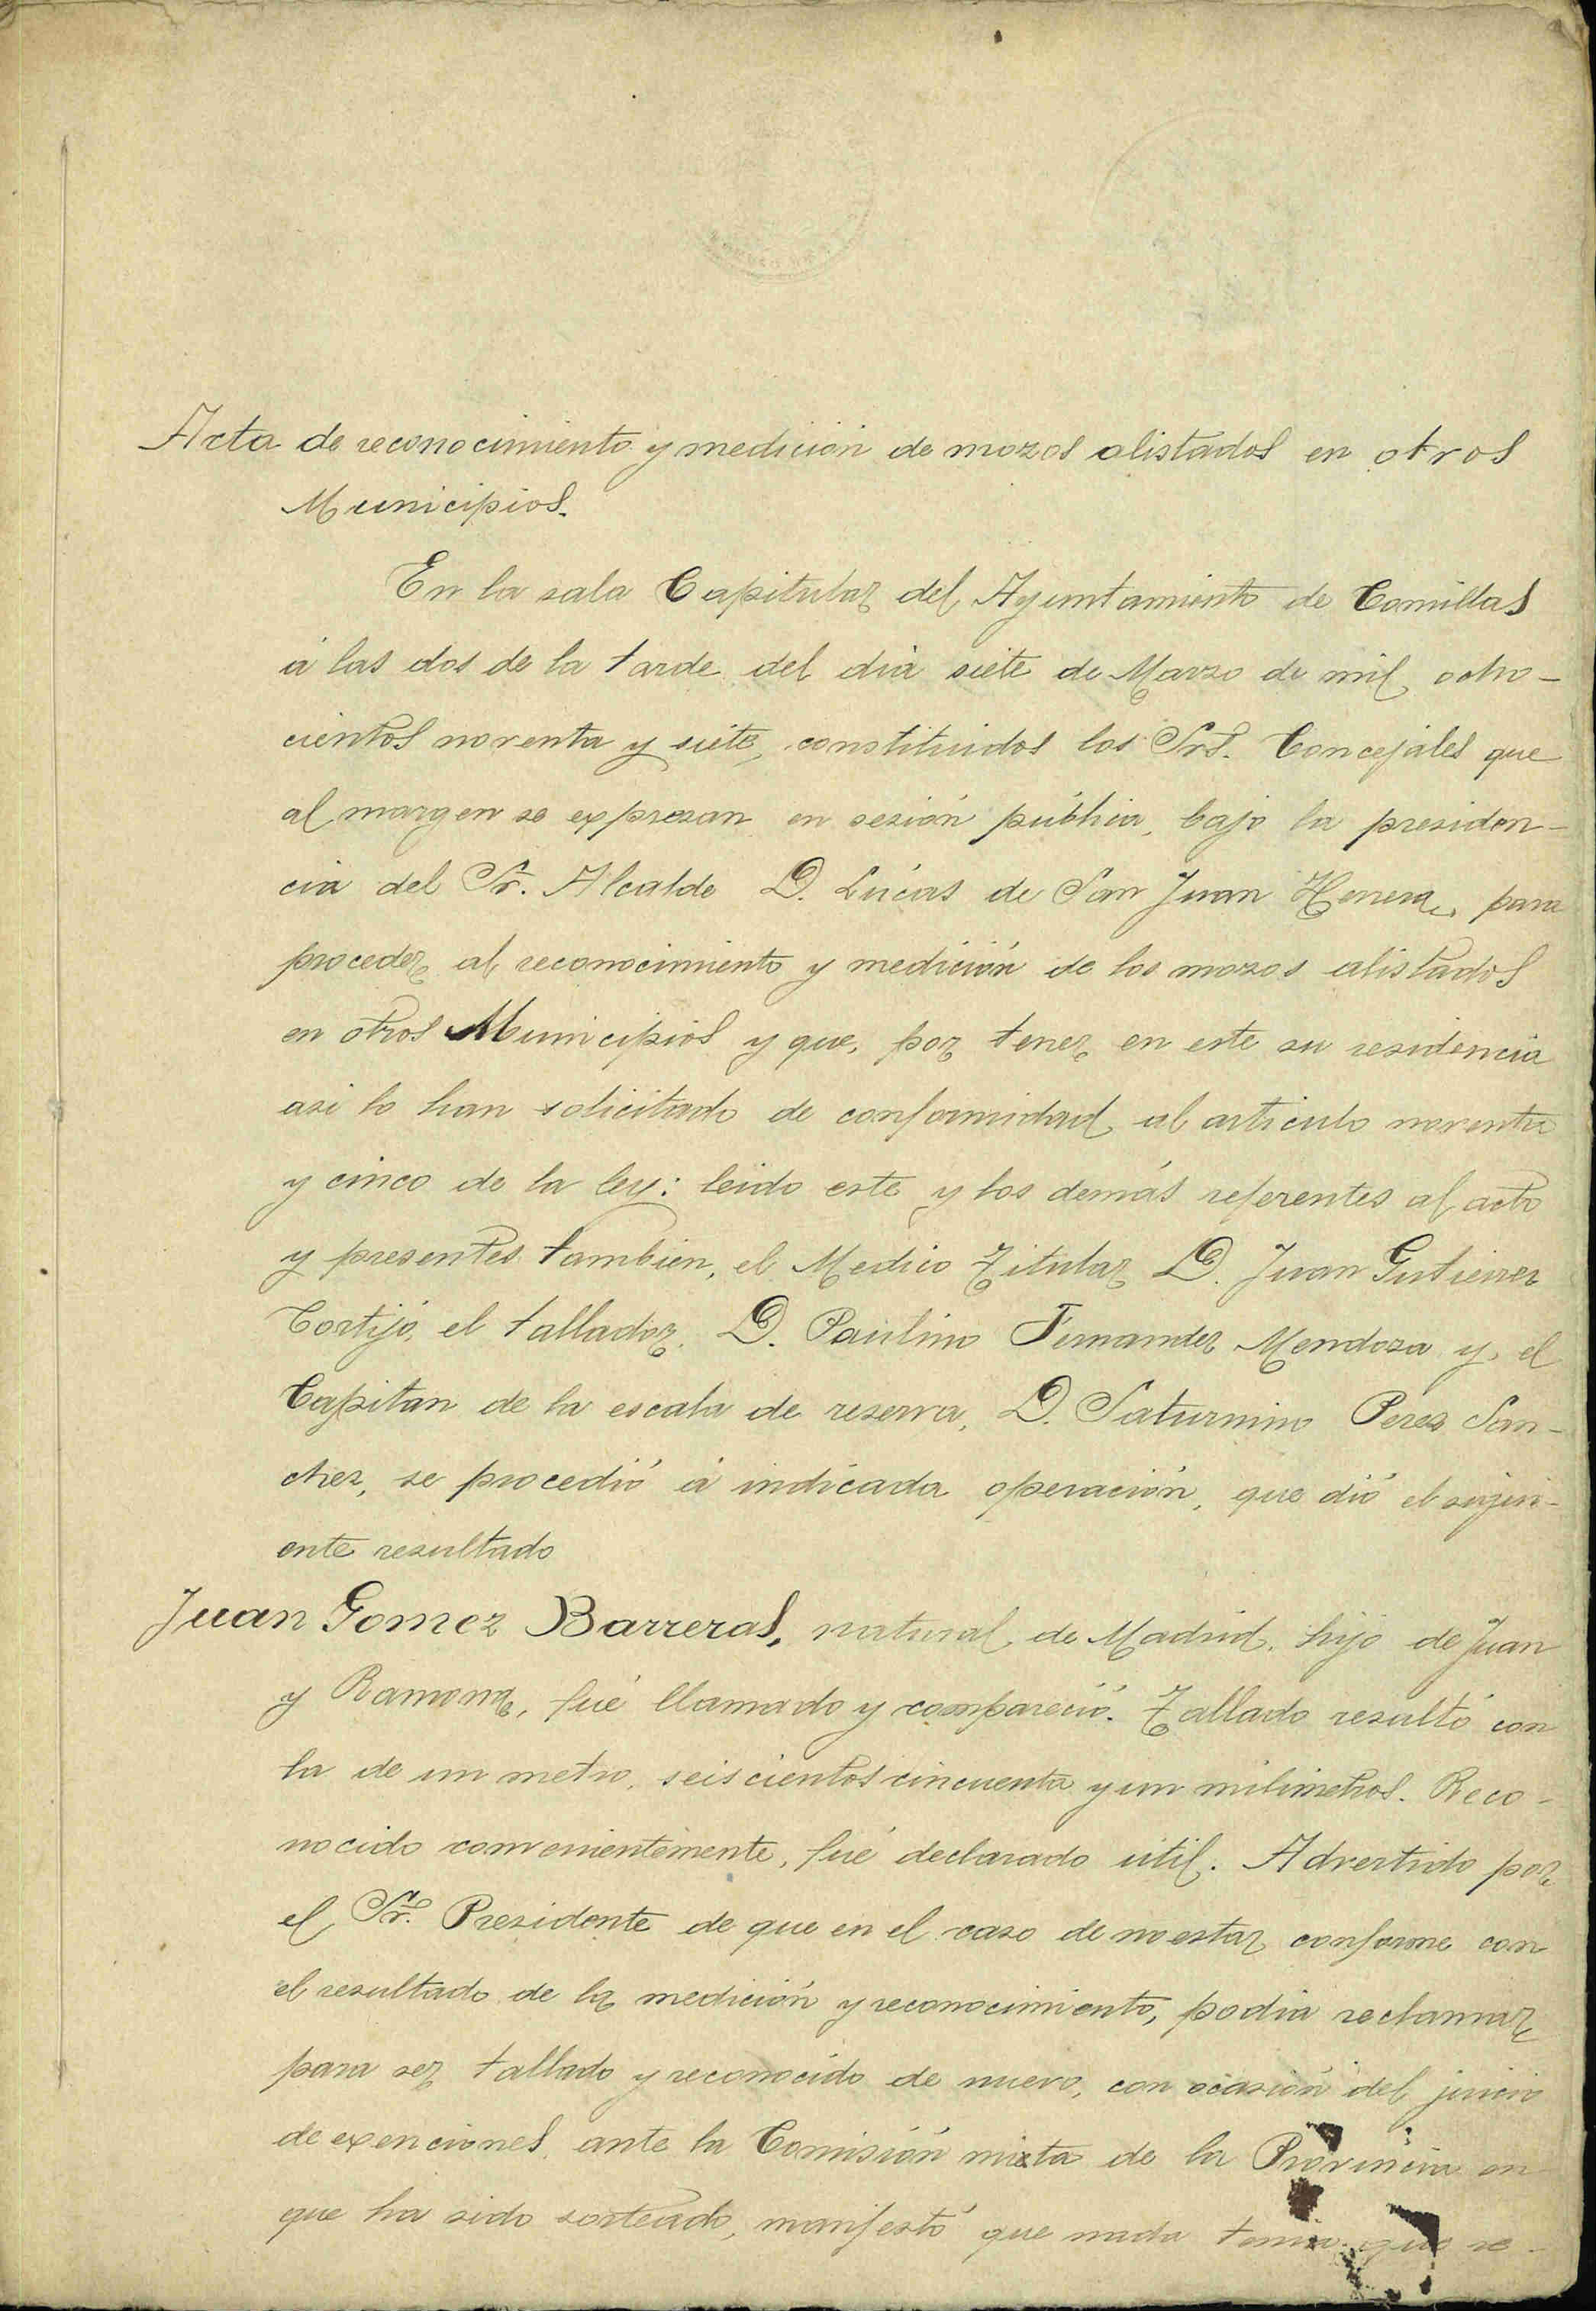 Acta de reconocimiento y medición de mozos alistados en otros
Municipios.
En la sala Capitular del Ayuntamiento de Comillas
á las dos de la tarde del dia siete de Marzo de mil ocho-
cientos noventa y siete, constituidos los Srs. Concejales que
al margen se expresan en sesión pública, bajo la presiden-
cia del Sr. Alcalde D. Lúcas de San Juan Herrera, para
proceder al reconocimiento y medición de los mozos alistados
en otros Municipios y que, por tener en este su residencia
asi lo han solicitado de conformidad al articulo noventa
y cinco de la ley: leido este y los demás referentes al acto
y presentes tambien, el Medico Titular D. Juan Gutierrez
Cortijo, el tallador, D. Paulino Fernandez Mendoza y el
Capitan de la escala de reserva, D. Saturnino Perez San-
chez, se procedió á indicada operación, que dió el sigui-
ente resultado
Juan Gomez Barreras, natural de Madrid, hijo de Juan
y Ramona, fué llamado y compareció. Tallado resultó con
la de un metro, seiscientos cincuenta y un milimetros. Reco-
nocido convenientemente, fué declarado útil. Advertido por
el Sr. Presidente de que en el caso de no estar conforme con
el resultado de la medición y reconocimiento, podia reclamar
para ser tallado y reconocido de nuevo, con ocasión del juicio
de exenciones ante la Comisión mixta de la Provincia en
que ha sido sorteado, manifestó que nada tenia que re-